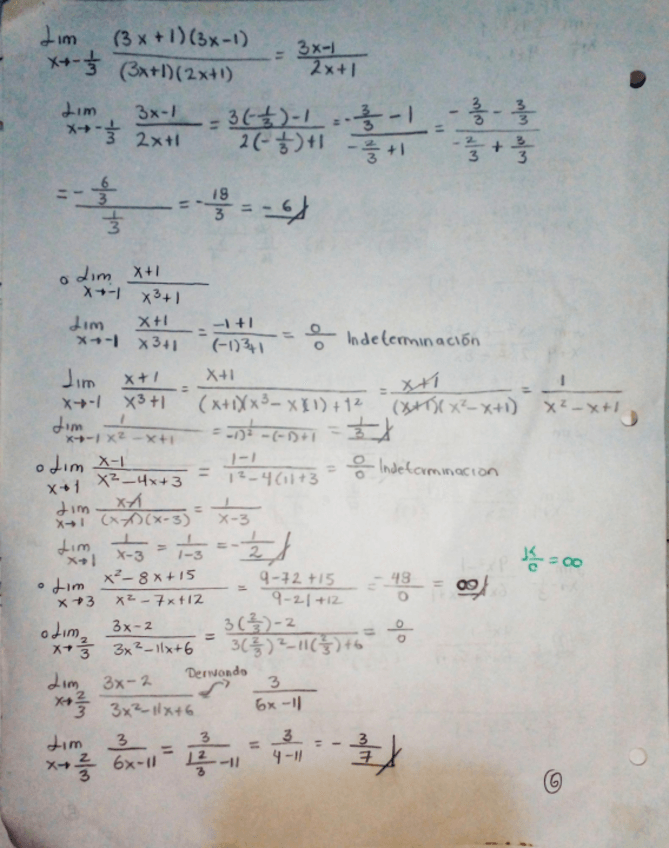 Lim x→-1/3 (3x+1)(3x-1)/(3x+1)(2x+1) = 3x-1/2x+1
Lim x→-1/3 3x-1/2x+1 = 3(-1/3)-1/2(-1/3)+1 = -3/3 -1/-2/3 +1 = -3/3 - 3/3/-2/3 + 3/3
= -6/3/1/3 = -18/3 = -6
o Lim x→-1 x+1/x³+1
Lim x→-1 x+1/x³+1 = -1+1/(-1)³+1 = 0/0 Indeterminación
Lim x→-1 x+1/x³+1 = x+1/(x+1)(x³-x)(1)+1² = x+1/(x+1)(x²-x+1) = 1/x²-x+1
Lim x→-1 1/x²-x+1 = 1/-1)²-(-1)+1 = 1/3
o Lim x→1 x-1/x²-4x+3 = 1-1/1²-4(1)+3 = 0/0 Indeterminacion
Lim x→1 x-1/(x-1)(x-3) = 1/x-3
Lim x→1 1/x-3 = 1/1-3 = -1/2
K/0 = ∞
o Lim x→3 x²-8x+15/x²-7x+12 = 9-72+15/9-21+12 = -48/0 = ∞
o Lim x→2/3 3x-2/3x²-11x+6 = 3(2/3)-2/3(2/3)²-11(2/3)+6 = 0/0
Lim x→2/3 3x-2/3x²-11x+6 Derivando 3/6x-11
Lim x→2/3 3/6x-11 = 3/12/3-11 = 3/4-11 = -3/7
6